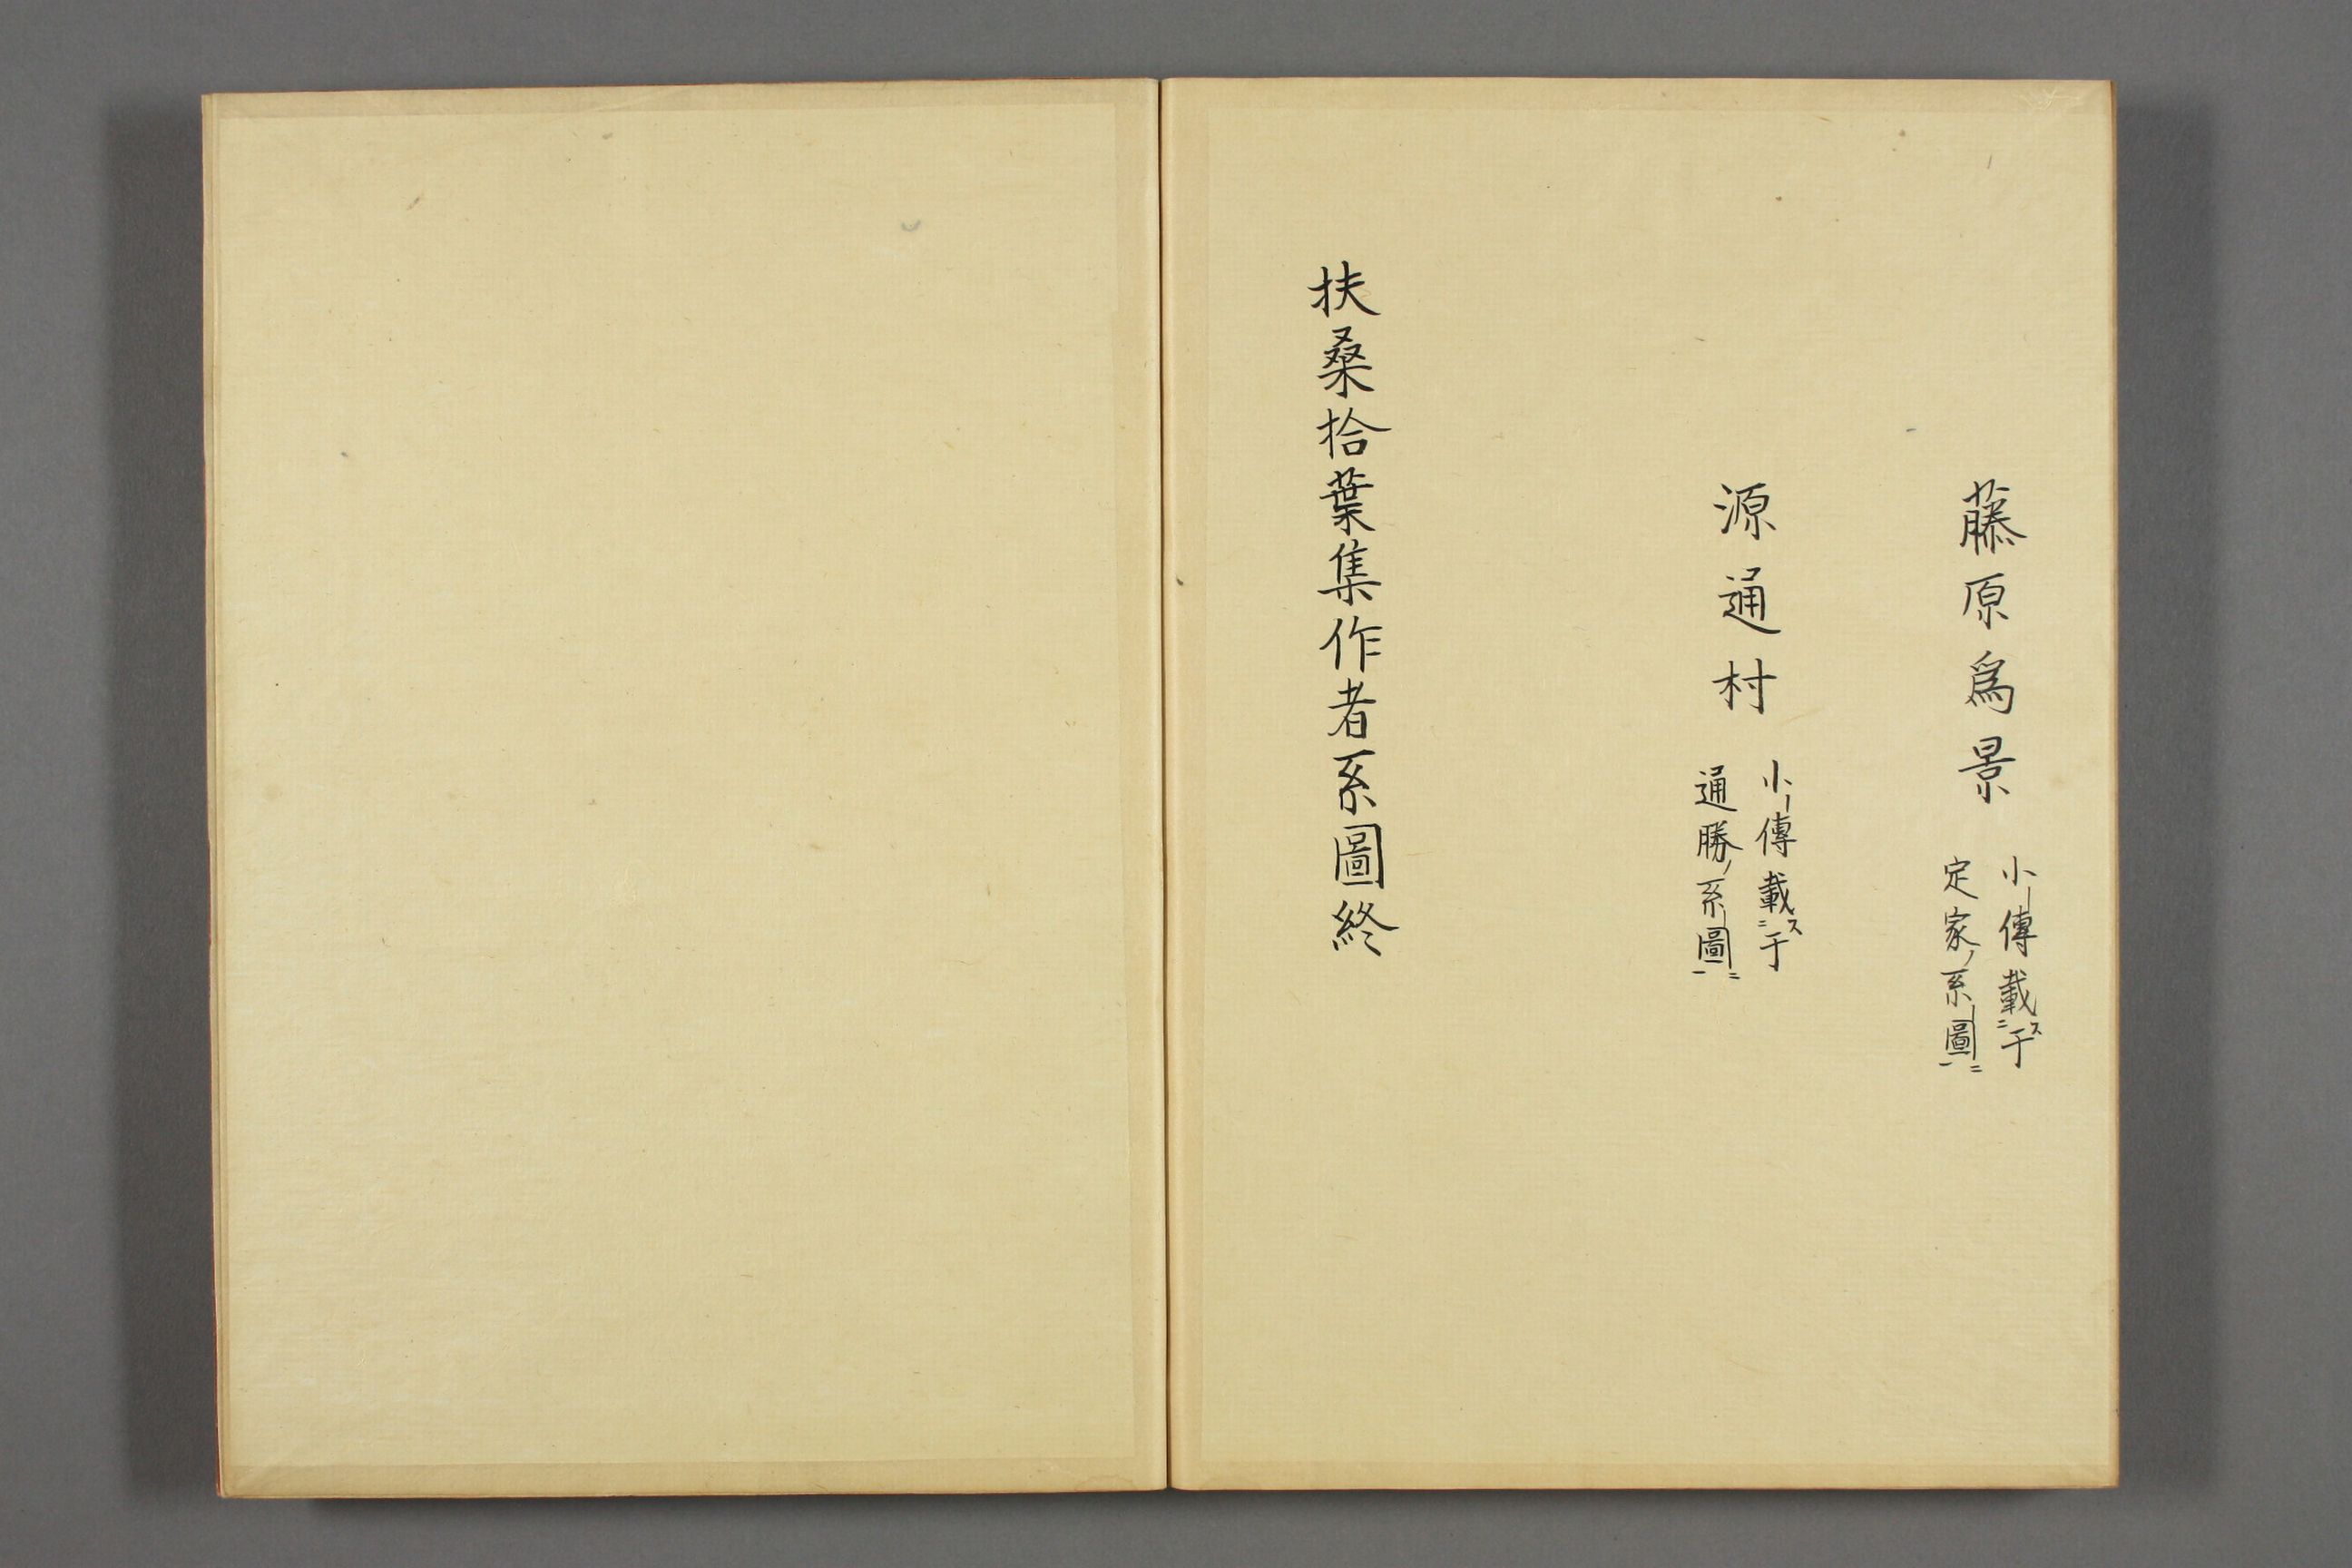 藤原爲景
小傳載ス二于
定家ノ系圖ニ一
源通村
小傳載ス二于
通勝ノ系圖ニ一
扶桑拾葉集作者系圖終